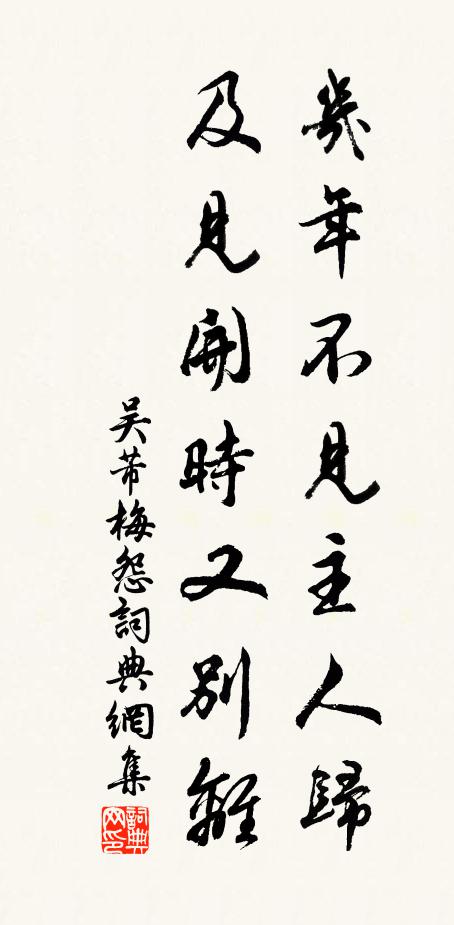 幾年不見主人歸
及見開時又別離
吳芾梅怨詞典網集
詞典網印